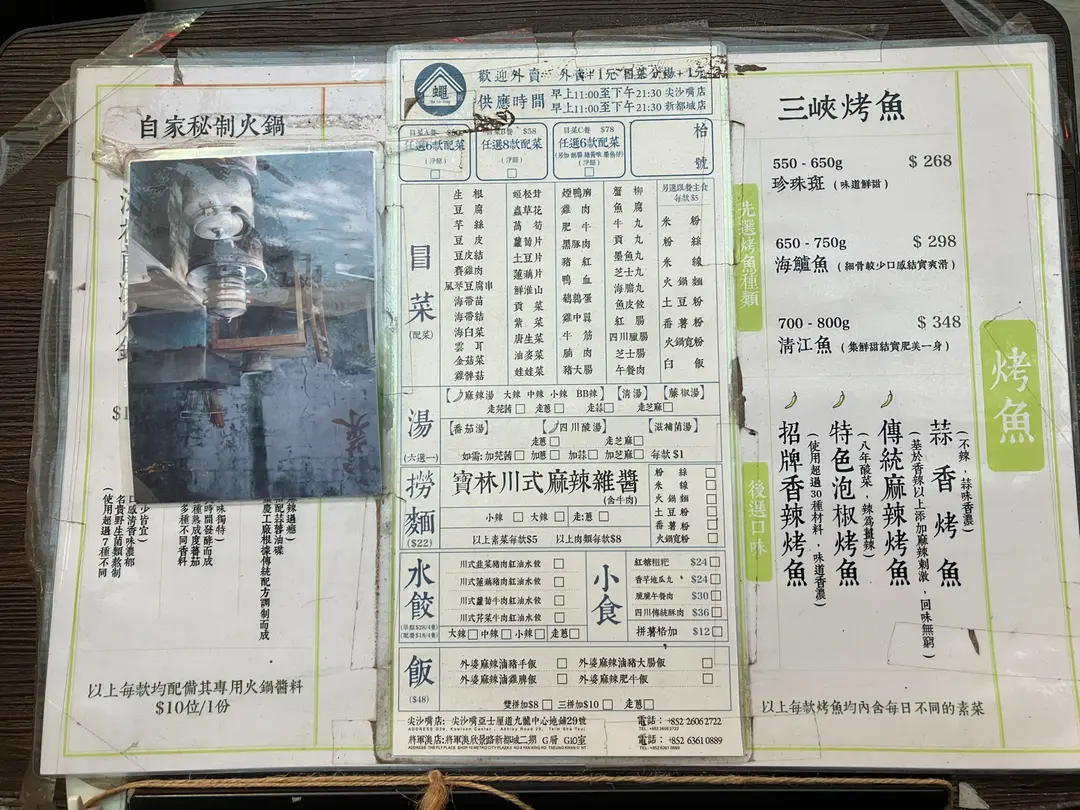 自家秘制火鍋
(使用超過7種不同
名貴野生菌類熬制
口感清香味濃郁
以上每款均配備其專用火鍋醬料
$10位/1份
蠅
歡迎外賣
供應時間
早上11:00至下午21:30 尖沙嘴店
早上11:00至下午21:30 新都城店
任選6款配菜
(淨餸)
$58
任選8款配菜
(淨餸)
冒菜C餐 $78
任選6款配菜
(淨餸)
枱號
冒菜
(配菜)
生根
豆腐
芋絲
豆皮
豆皮結
賽雞肉
風琴豆腐串
海帶苗
海帶結
海白菜
雲耳
金菇菜
雞髀菇
姬松茸
蟲草花
萵筍
蘿蔔片
土豆片
蓮藕片
鮮淮山
貢菜
紫菜
唐生菜
油麥菜
娃娃菜
煙鴨胸
雞肉
肥牛
黑豚肉
豬紅
鴨血
鵪鶉蛋
雞中翼
牛筋
腩肉
豬大腸
蟹柳
魚腐
牛丸
貢丸
墨魚丸
芝士丸
海膽丸
魚皮餃
紅腸
四川臘腸
芝士腸
午餐肉
另選跟餐主食
每款$5
米粉
粉絲
米線
火鍋麵
土豆粉
番薯粉
火鍋寬粉
白飯
湯
(六選一)
【麻辣湯 大辣 中辣 小辣 BB辣】【清湯】【藤椒湯】
走芫茜 走蔥 走蒜 走芝麻
【番茄湯】【四川酸湯】【滋補菌湯】
走蔥 走芝麻
如需: 加芫茜 加蔥 加蒜 加芝麻 每款$1
撈麵
($22)
寶林川式麻辣雜醬
(含牛肉)
小辣 大辣 走:蔥
以上素菜每款$5 以上肉類每款$8
粉絲
米線
火鍋麵
土豆粉
番薯粉
火鍋寬粉
水餃
川式韭菜豬肉紅油水餃
川式蓮藕豬肉紅油水餃
川式蘿蔔牛肉紅油水餃
川式芹菜牛肉紅油水餃
大辣 中辣 小辣 走蔥
小食
紅糖糍粑 $24
香芋地瓜丸 $24
脆脆午餐肉 $30
四川傳統酥肉 $36
拼薯格加 $12
飯
($48)
外婆麻辣滷豬手飯
外婆麻辣滷豬大腸飯
外婆麻辣滷雞髀飯
外婆麻辣肥牛飯
雙拼加$8 三拼加$10 走蔥
尖沙嘴店: 尖沙嘴亞士厘道九龍中心地鋪29號
電話: +852 2606 2722
將軍澳店:將軍澳欣景路新都城二期 G層 G10室
電話: +852 6361 0889
三峽烤魚
550 - 650g $ 268
珍珠斑 (味道鮮甜)
650 - 750g $ 298
海鱸魚 (細骨較少口感結實爽滑)
700 - 800g $ 348
清江魚 (集鮮甜結實肥美一身)
先選烤魚種類
後選口味
烤魚
蒜香烤魚
(不辣,蒜味香濃)
傳統麻辣烤魚
(基於香辣以上添加麻辣刺激,回味無窮)
特色泡椒烤魚
(八年酸菜,辣為薑辣)
招牌香辣烤魚
(使用超過30種材料,味道香濃)
以上每款烤魚均內含每日不同的素菜